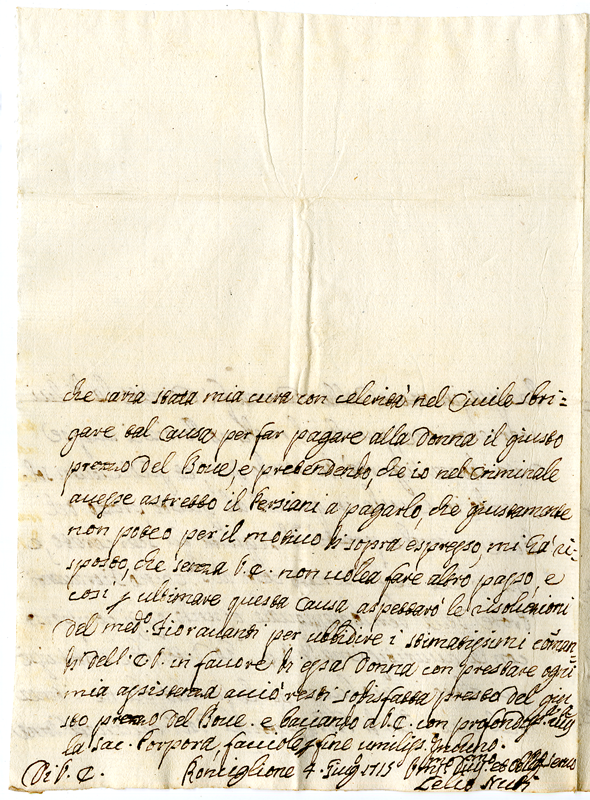 che saria stata mia cura con celerità nel Civile sbri=
gare tal causa per far pagare alla donna il giusto
prezzo del Bove, e pretendendo, che io nel Criminale
avesse astretto il Persiani a pagarlo, che giustamente
non poteo per il motivo di sopra espresso, mi hà ri=
sposto, che senza V.E. non volea fare altro passo, e
così p ultimare questa causa aspettarò le risoluzioni
del med.o Fioravanti per ubbidire i stimatissimi coman=
di dell'E.V. in favore di essa donna con prestare ogni
mia assistenza acciò resti sodisfatta presto del giu=
sto prezzo del Bove. e baciando a V.E. con profondiss.
la Sac. Porpora, facciole p fine umiliss. inchino.
Di V.E. Ronciglione 4. Giug.o 1715
Lelio Nuti